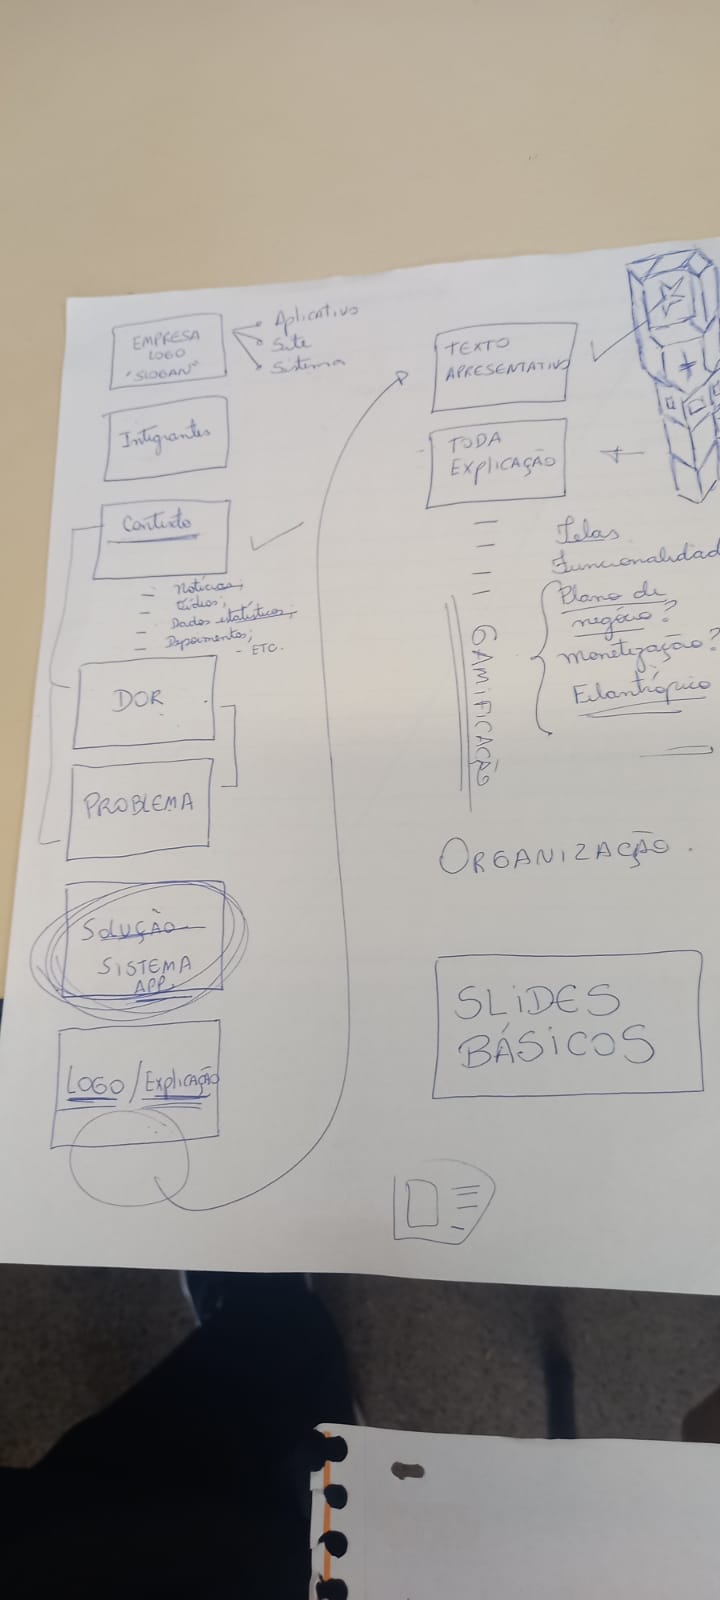 EMPRESA
LOGO
"SLOGAN"
Aplicativo
Site
Sistema
Integrantes
Contexto
- Notícias;
- Vídeos;
- Dados estatísticos;
- Depoimentos;
- ETC.
DOR
PROBLEMA
SOLUÇÃO
SISTEMA
APP.
LOGO / Explicação
TEXTO
APRESENTATIVO
TODA
EXPLICAÇÃO
Telas
Funcionalidad
Plano de
negócio?
Monetização?
Filantrópico
GAMIFICAÇÃO
ORGANIZAÇÃO.
SLIDES
BÁSICOS